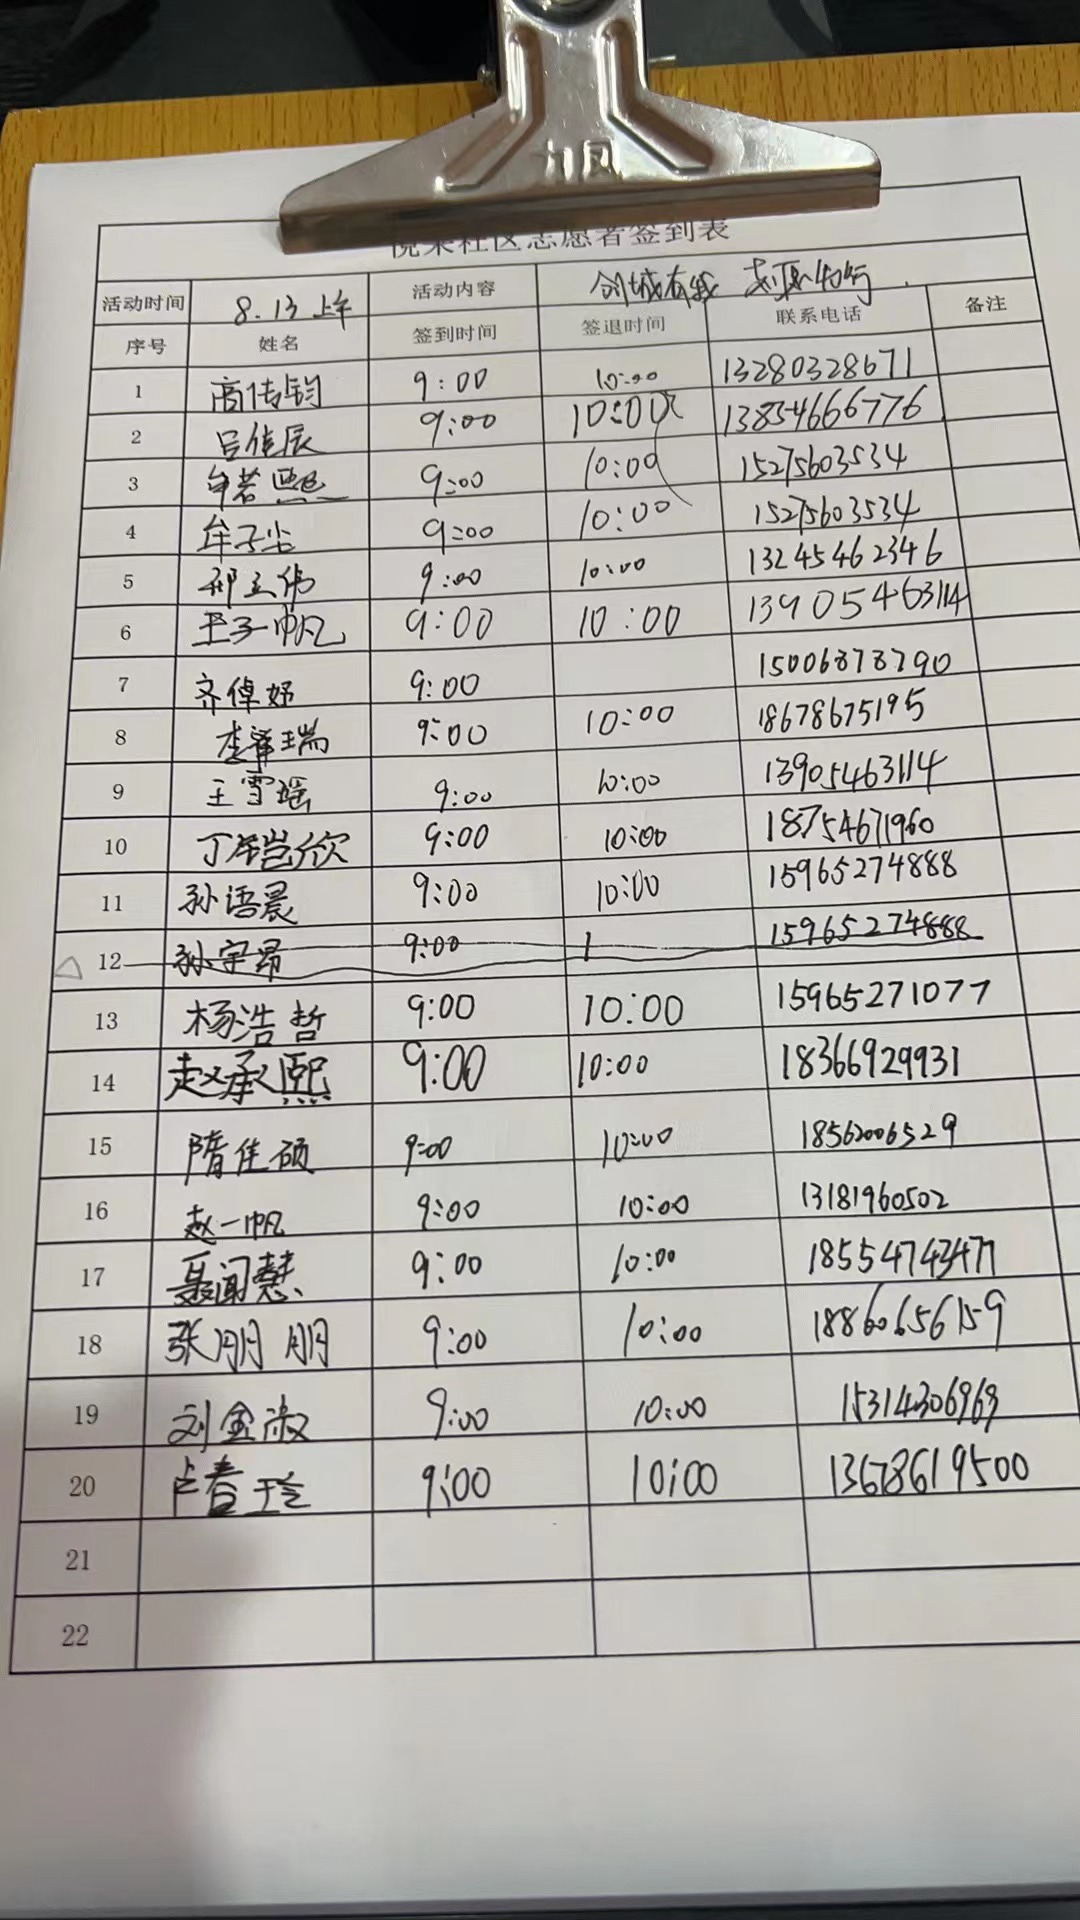 力凤
悦来社区志愿者签到表
活动时间 8.13上午 活动内容 创城有我
序号 姓名 签到时间 签退时间 联系电话 备注
1 商传钧 9:00 10:00 13280328671
2 吕佳辰 9:00 10:00 13854666776
3 牟若熙 9:00 10:00 15275603534
4 牟子尘 9:00 10:00 15275603534
5 邢立伟 9:00 10:00 13245462346
6 王子帆 9:00 10:00 13905463114
7 齐倬妤 9:00 15006878290
8 李睿瑞 9:00 10:00 18678675195
9 王雪瑶 9:00 10:00 13905463114
10 丁铠欣 9:00 10:00 18754671960
11 孙语晨 9:00 10:00 15965274888
12 孙宇昂 9:00 1 15965274888
13 杨浩哲 9:00 10:00 15965271077
14 赵承熙 9:00 10:00 18366929931
15 隋佳硕 9:00 10:00 18562006529
16 赵一帆 9:00 10:00 13181960502
17 聂闻慧 9:00 10:00 18554743477
18 张朋朋 9:00 10:00 18860656159
19 刘金淑 9:00 10:00 15314306969
20 卢春玲 9:00 10:00 13678619500
21
22